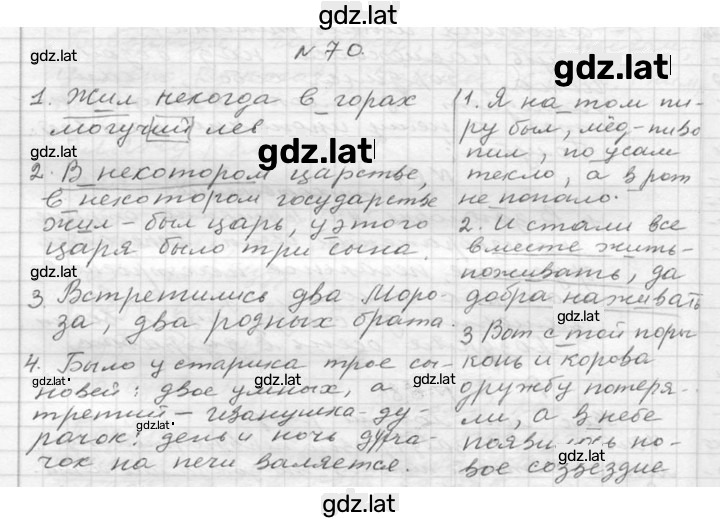 gdz.lat
gdz.lat
N 70.
gdz.lat
1. Жил некогда в горах
могучий лев
gdz.lat
gdz.lat
2. В некотором царстве,
в некотором государстве
жил-был царь, у этого
царя было три сына.
gdz.lat
3 Встретились два Моро-
за, два родных брата.
4. Было у старика трое сы-
gdz.lat
gdz.lat
gdz.lat
новей: двое умных, а
третий - Иванушка-ду-
gdz.lat
рачок: день и ночь дура-
чок на печи валяется.
1. Я на том пи-
ру был, мёд-пиво
пил, по усам
текло, а в рот
не попало.
2. И стали все
вместе жить-
поживать, да
добра наживать
3 Вот с той поры
конь и корова
дружбу потеря-
ли, а в небе
появилось но-
gdz.lat
вое созвездие
gdz.lat